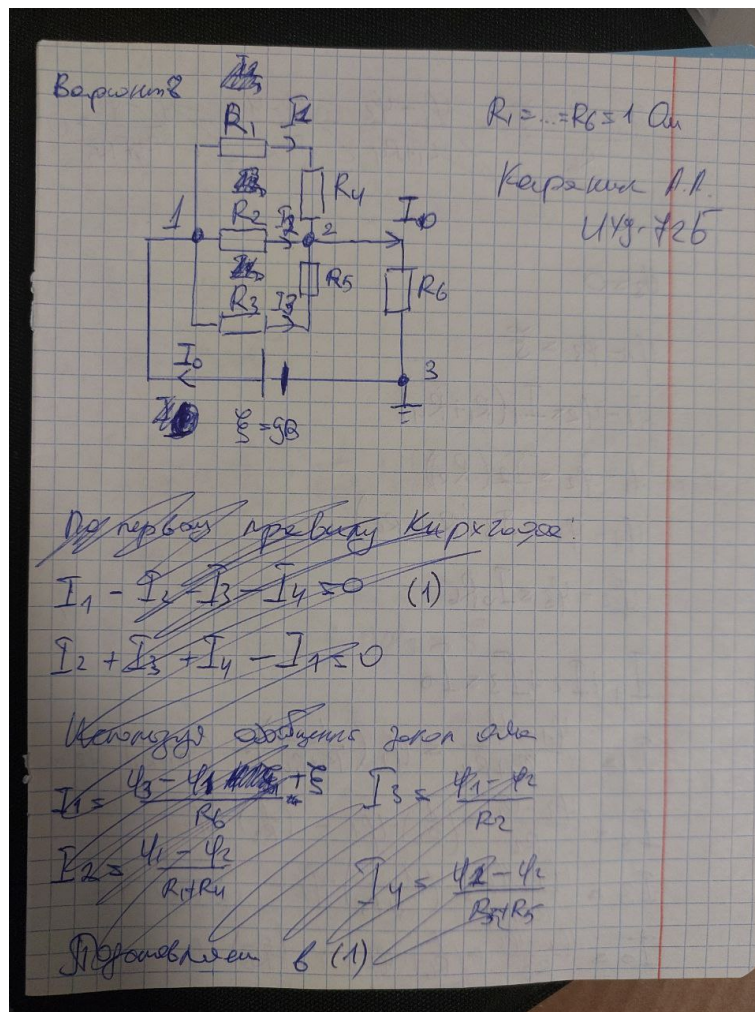 Вариант 8
R₁ = ... = R₆ = 1 Ом
R₁
I1
R₄
1
R₂
I2
2
I₀
R₅
R₆
R₃
I3
I₀
3
ξ = 9В
По первому правилу Кирхгофа:
I₁ - I₂ - I₃ - I₄ = 0 (1)
I₂ + I₃ + I₄ - I₁ = 0
Используя закон Ома
I₁ = φ₃ - φ₁ + ξ / R₆
I₃ = φ₁ - φ₂ / R₂
I₂ = φ₁ - φ₂ / R₁+R₄
I₄ = φ₁ - φ₂ / R₃+R₅
Подставляем в (1)